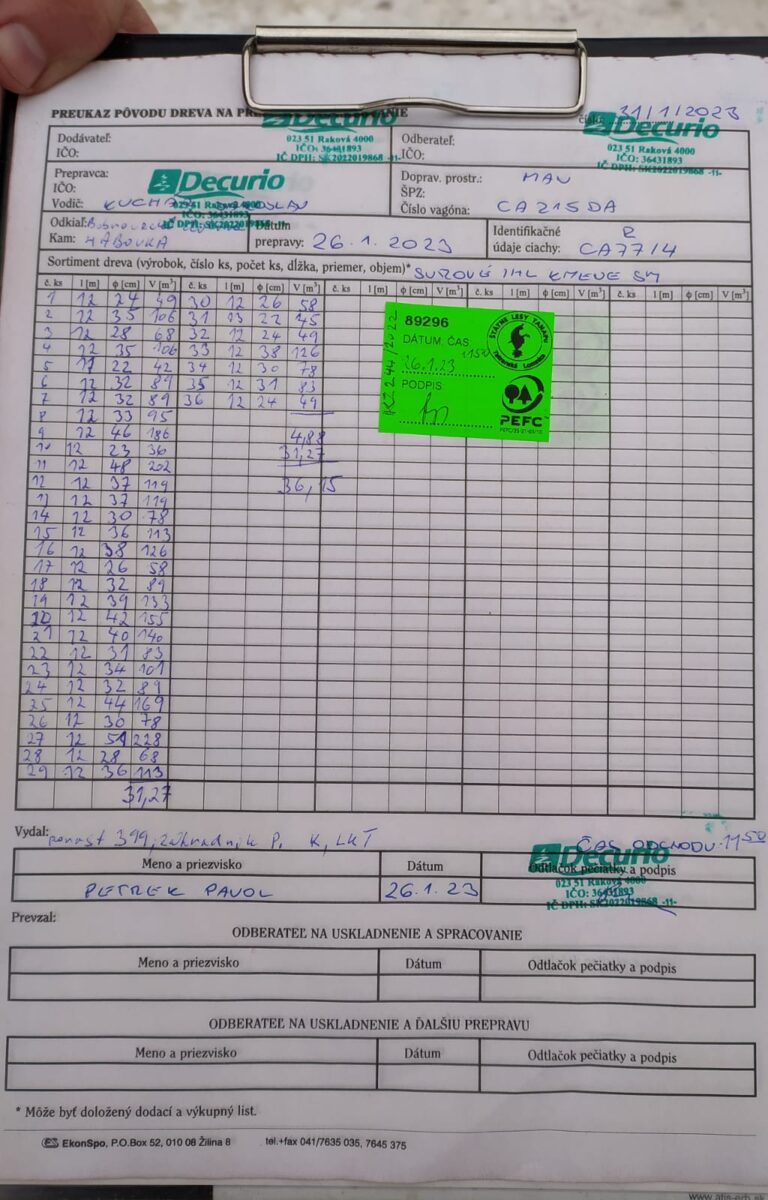 PREUKAZ PÔVODU DREVA NA
číslo: 31/1/2023
Decurio
023 51 Raková 4000
IČO: 36431893
IČ DPH: SK2022019868 -11-
Decurio
023 51 Raková 4000
IČO: 36431893
IČ DPH: SK2022019868 -11-
Dodávateľ:
IČO:
Odberateľ:
IČO:
Prepravca:
IČO:
Vodič:
Decurio
023 51 Raková 4000
IČO: 36431893
Doprav. prostr.: MAN
ŠPZ:
Číslo vagóna: CA 215 DA
Odkiaľ:
Kam: HABOVKA
Dátum
prepravy: 26.1.2023
Identifikačné R
údaje ciachy: CA7714
Sortiment dreva (výrobok, číslo ks, počet ks, dĺžka, priemer, objem)* SUROVÉ IHL KMENE SM
č. ks l [m] ϕ [cm] V [m³] č. ks l [m] ϕ [cm] V [m³] č. ks l [m] ϕ [cm] V [m³] č. ks l [m] ϕ [cm] V [m³] č. ks l [m] ϕ [cm] V [m³]
1 12 24 49 30 12 26 58
2 12 35 106 31 23 22 45
3 12 28 68 32 12 24 49
4 12 35 106 33 12 38 126
5 22 42 34 12 30 78
6 12 32 89 35 12 31 83
7 12 32 89 36 12 24 49
8 12 33 95
9 12 46 186 4,88
10 12 23 36 31,27
11 12 48 202
12 12 37 119 36,15
13 12 37 119
14 12 30 78
15 12 36 113
16 12 38 126
17 12 26 58
18 12 32 89
19 12 39 133
20 12 42 155
21 12 40 140
22 12 31 83
23 12 34 101
24 12 32 89
25 12 44 169
26 12 30 78
27 12 51 228
28 12 28 68
29 12 36 113
31,27
89296
DÁTUM, ČAS
26.1.23 1150
PODPIS
ŠTÁTNE LESY TANAPU
Tatranská Lomnica
PEFC
Vydal: porast 399, záhradník P. K, LKT
ČAS ODCHODU 11 50
Meno a priezvisko Dátum Odtlačok pečiatky a podpis
PETREK PAVOL 26.1.23
Decurio
023 51 Raková 4000
IČO: 36431893
IČ DPH: SK2022019868 -11-
Prevzal:
ODBERATEĽ NA USKLADNENIE A SPRACOVANIE
Meno a priezvisko Dátum Odtlačok pečiatky a podpis
ODBERATEĽ NA USKLADNENIE A ĎALŠIU PREPRAVU
Meno a priezvisko Dátum Odtlačok pečiatky a podpis
* Môže byť doložený dodací a výkupný list.
EkonSpo, P.O.Box 52, 010 08 Žilina 8 tel.+fax 041/7635 035, 7645 375